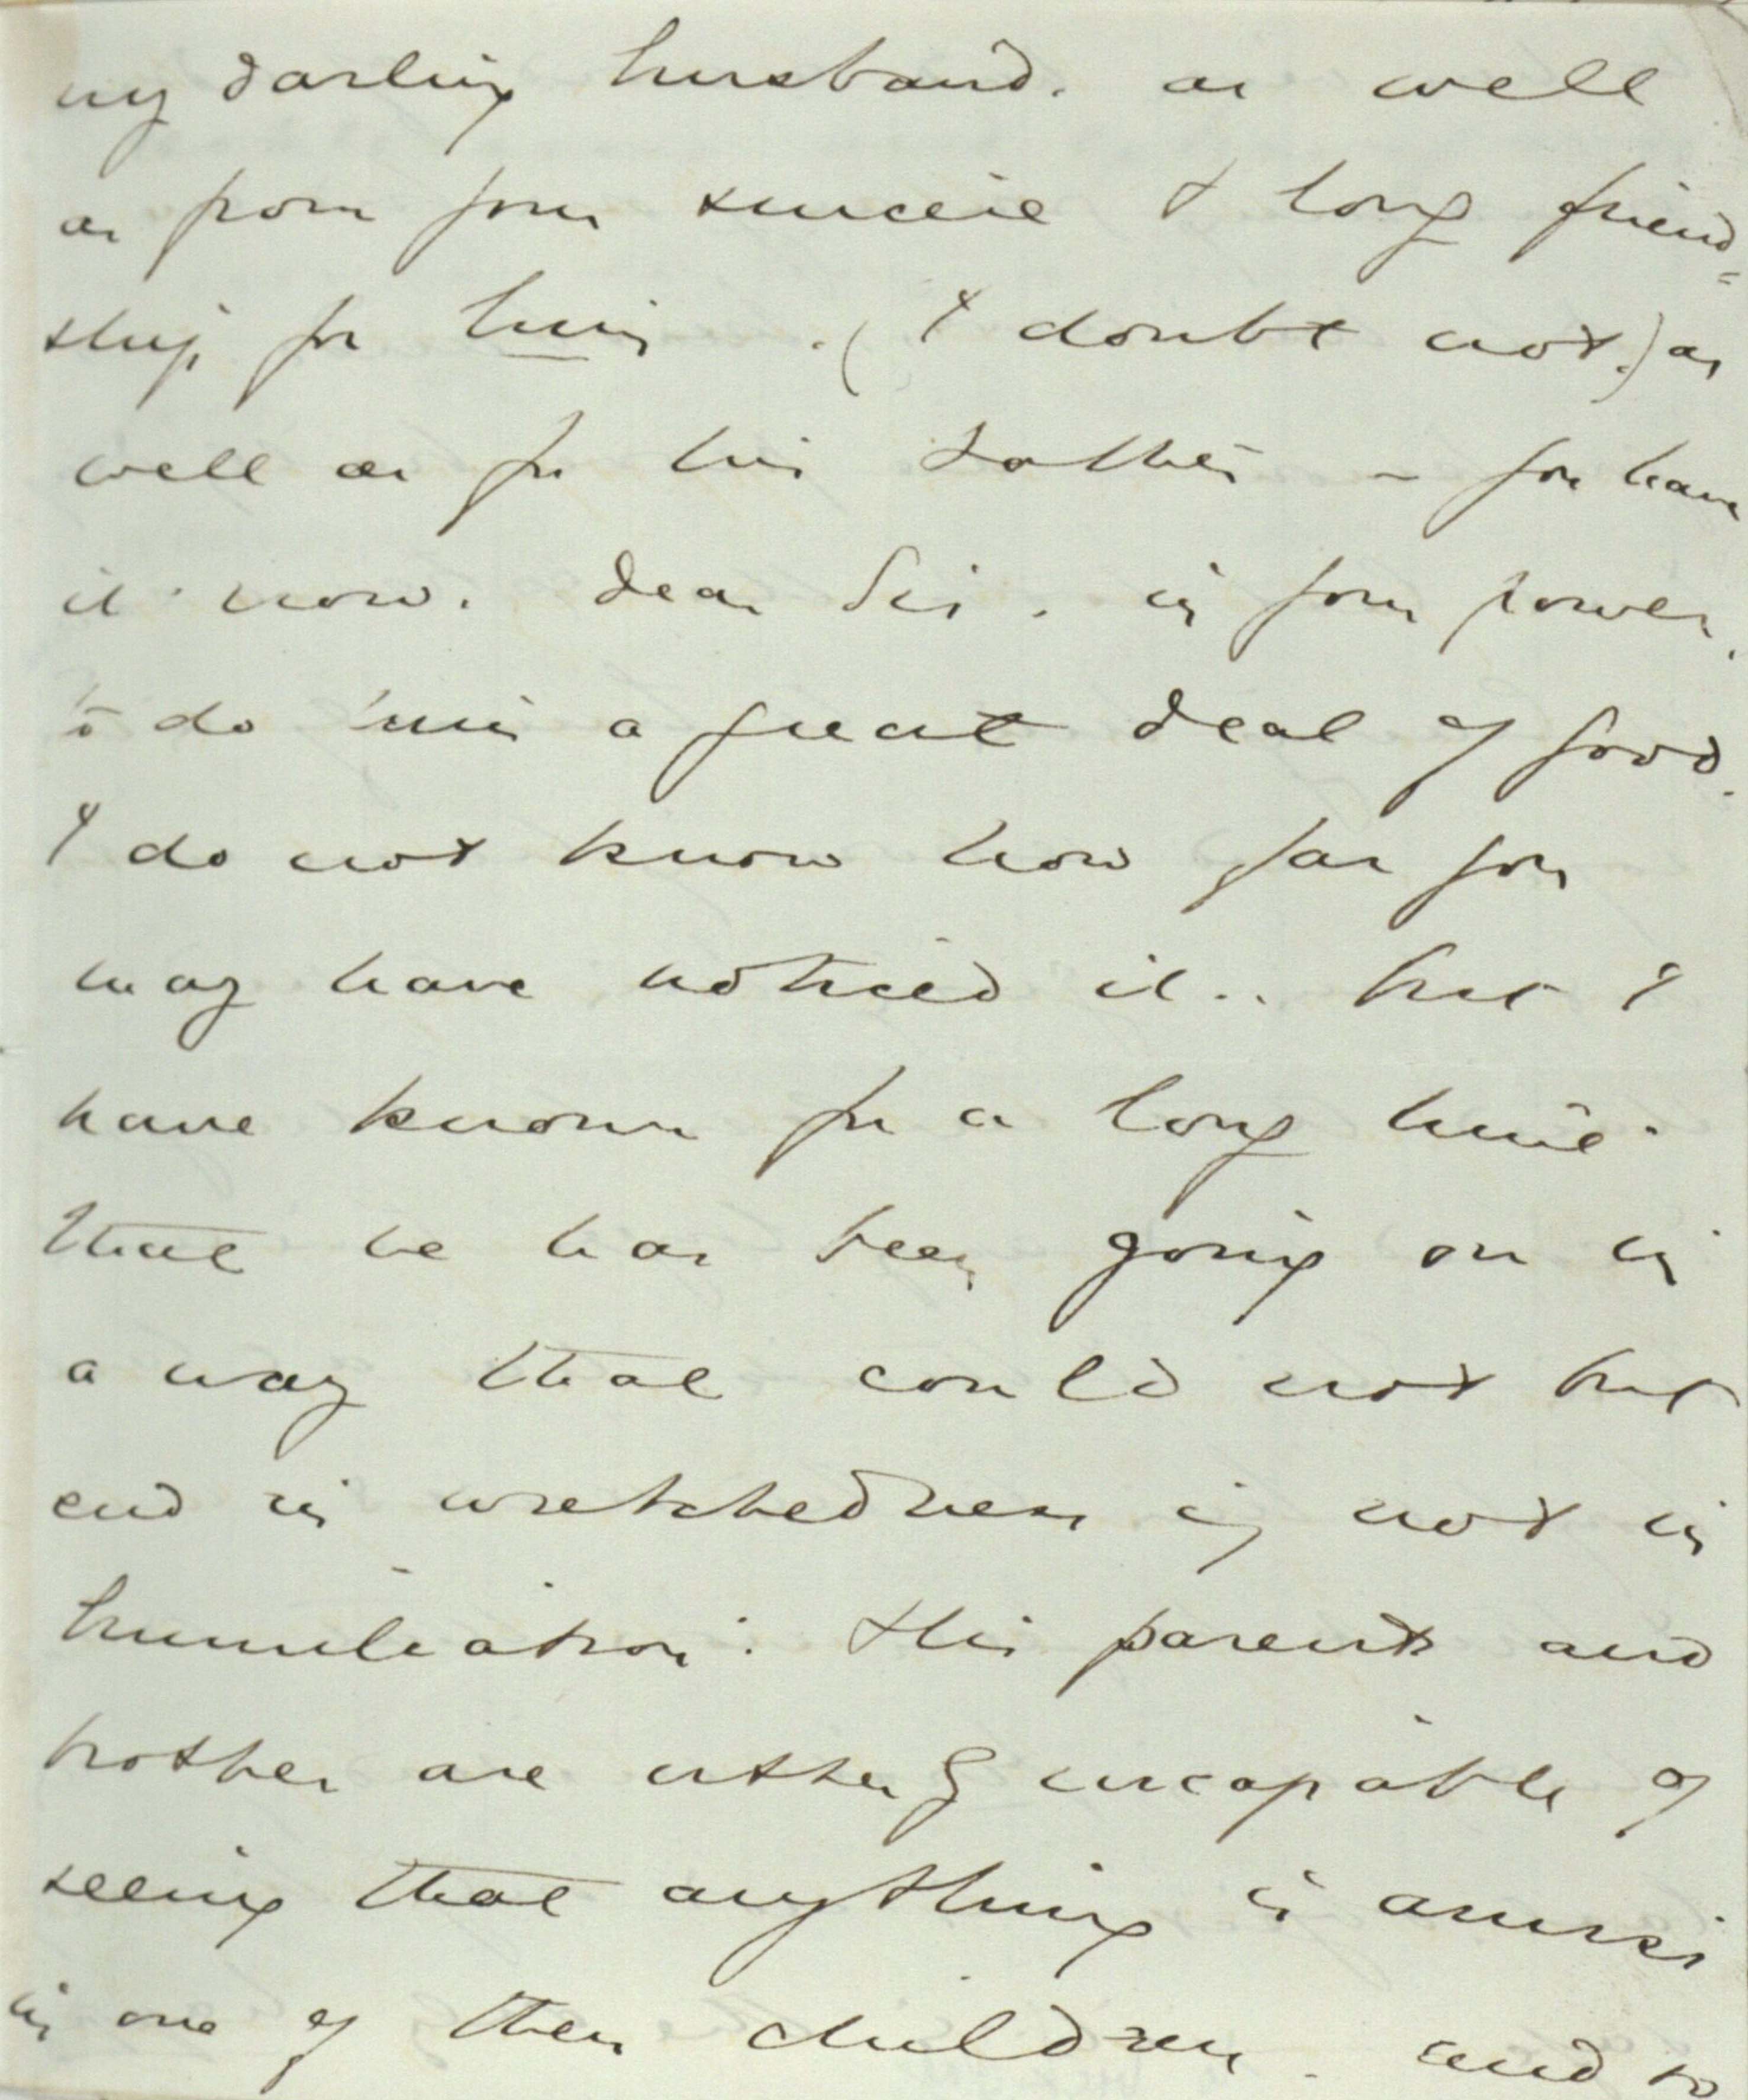 my darling husband. as well
as from your sincere & long friend=
ship for him . (I doubt not.) as
well as for his Father - you have
it now. dear Sir. in your power,
to do him a great deal of good.
I do not know how far you
may have noticed it.. but I
have known for a long time.
that he has been going on in
a way that could not but
end in wretchedness if not in
humiliation: His parents and
brother are utterly incapable of
seeing that anything is amiss
in one of their children. and so